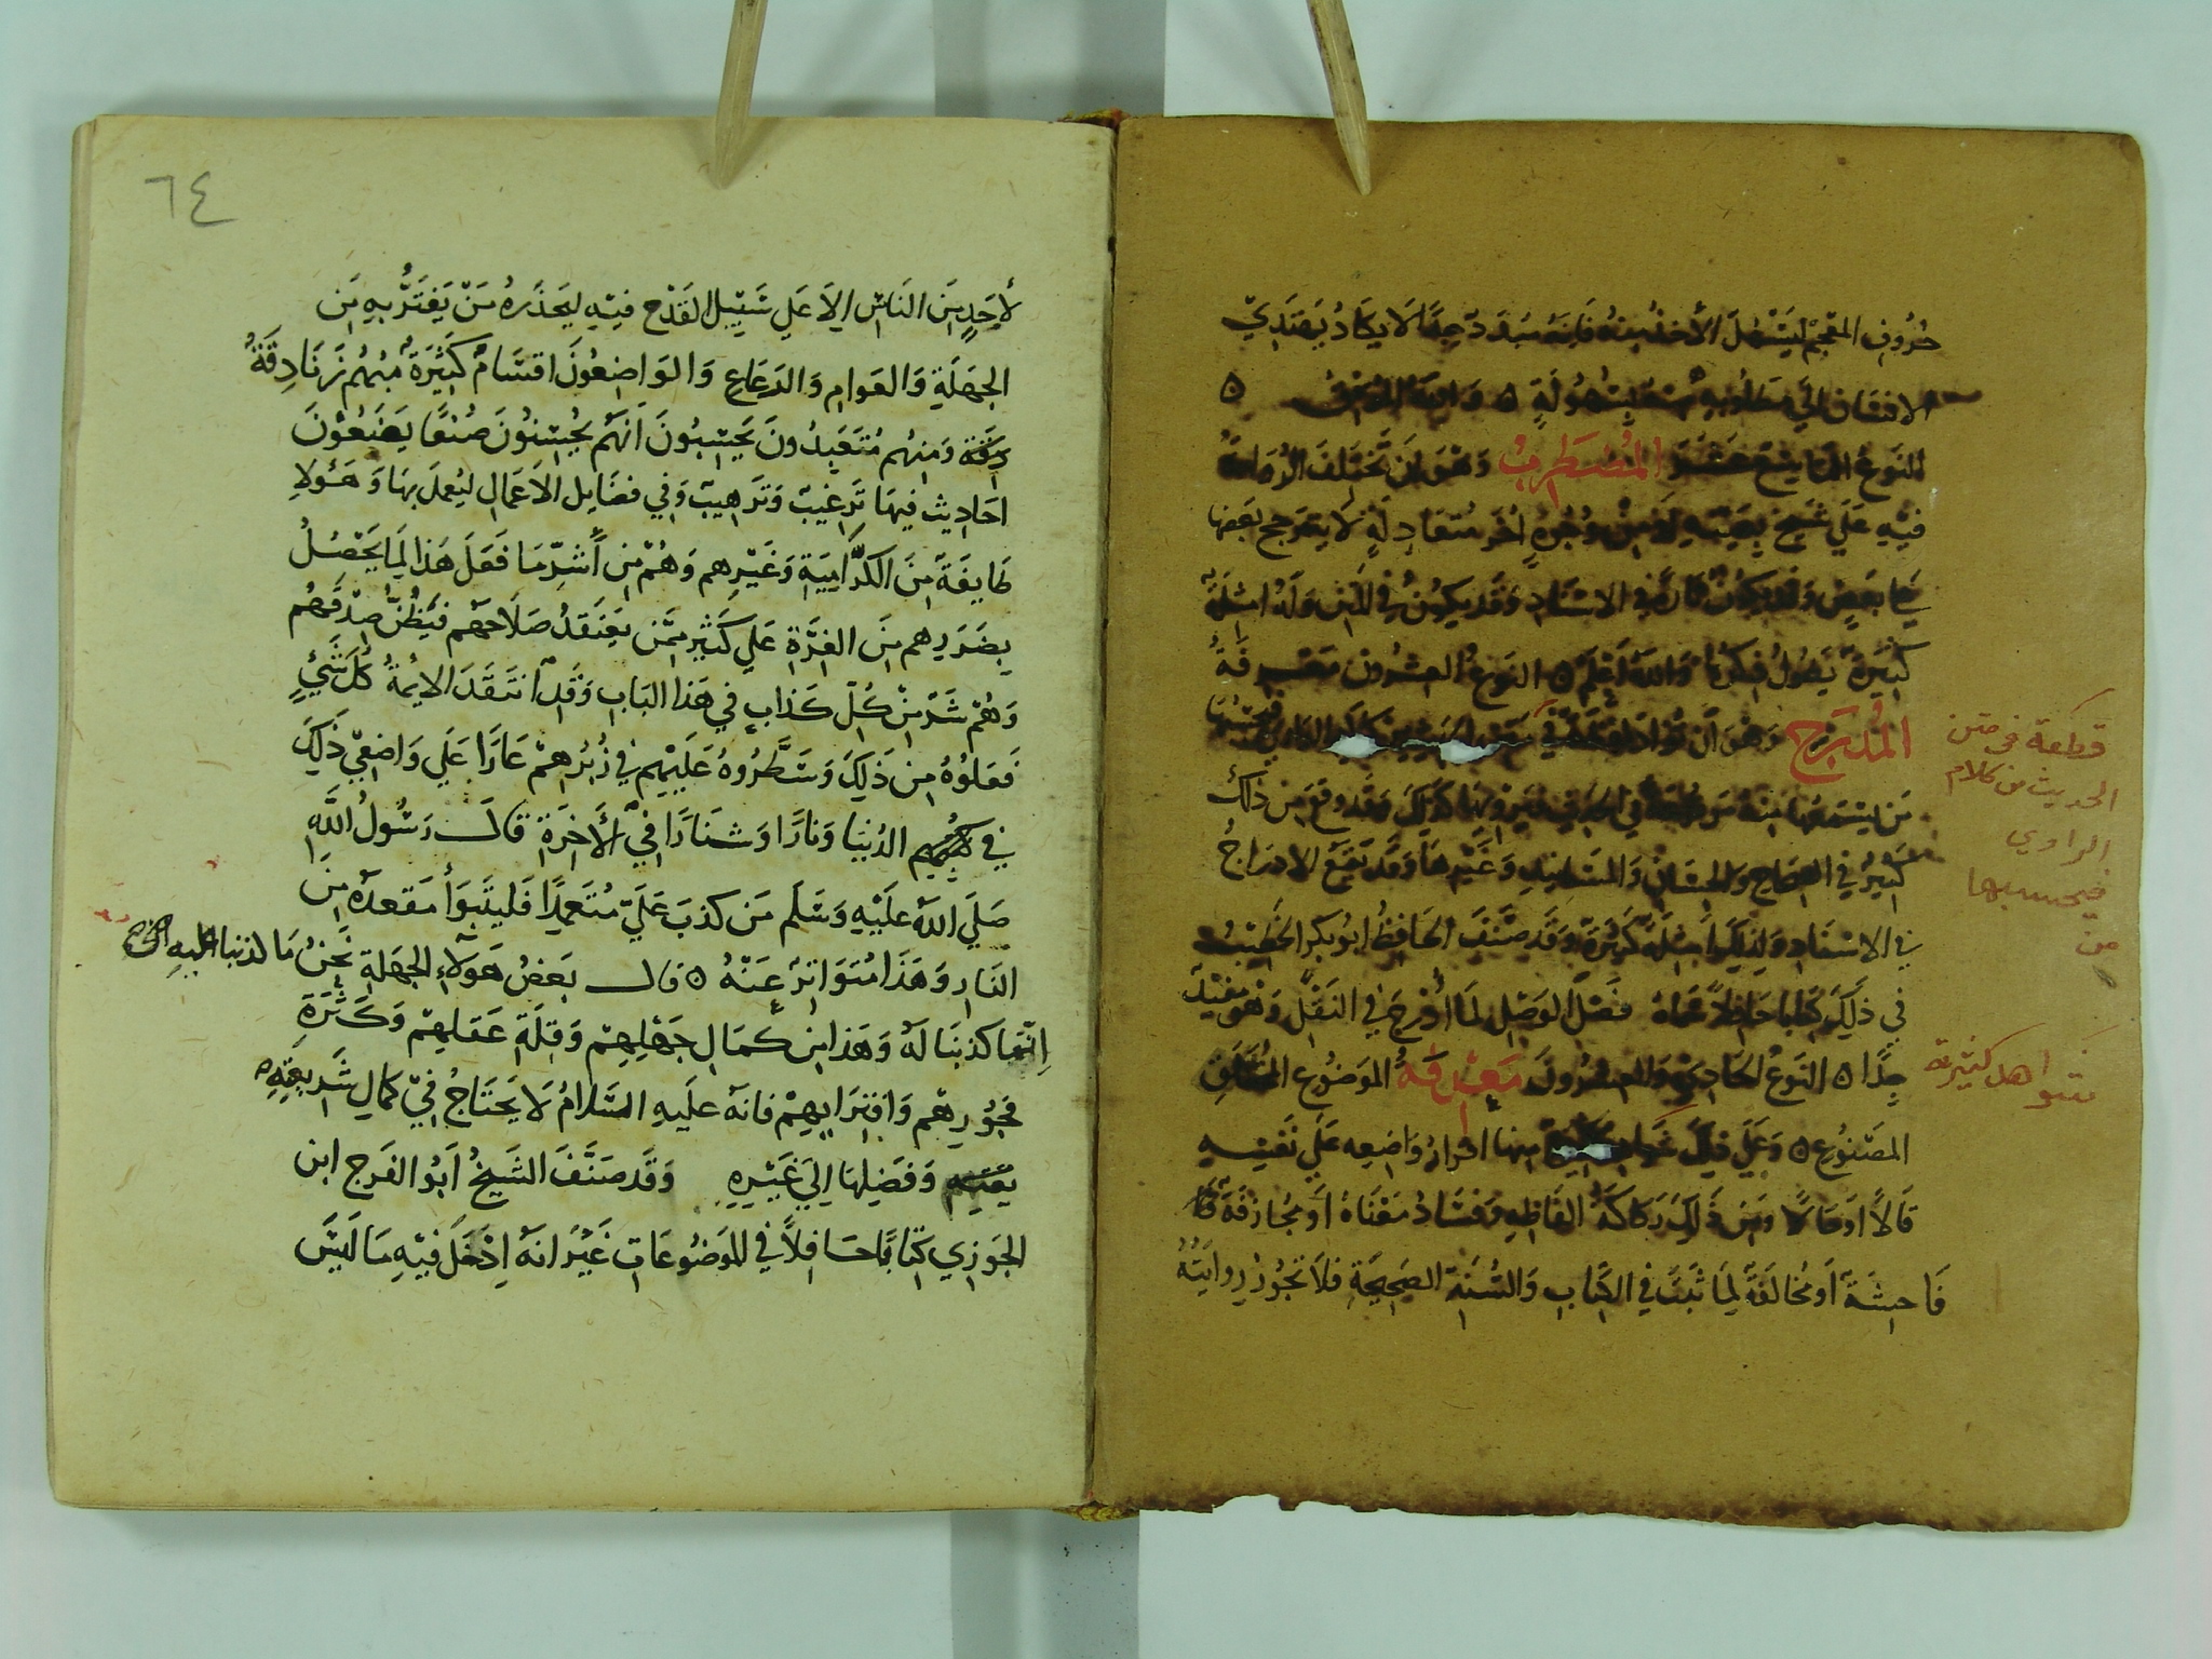 حُرُوفِ المعْجَمْ ليَسْهُلَ الأخذُ مِنهُ فَإنّهُ مُبَدّدٌ جِدًّا لَا يكَادُ يَهتَدِي
الإنْسَان إلي مَطْلُوبِهِ مِنْهُ بِسُهُولَةٍ ه وَاللهُ المُوفِّقُ ه
النَوعُ التاسِع عَشَرَ المُضطَرِبُ وَهْوَ أن تَخْتَلِفَ الرُوَاةُ
فيْهِ عَلَي شَيخٍ بِعَيْنِهِ أوْ مِنْ وُجُوهٍ أُخَر مُتعَادِلَةٍ لَا يترجح بَعضهَا
عَلي بَعْضٍ وَقَد يَكُونُ تَارَةً في الاسْنَادِ وَقَد يكوُن في المَتْنِ وَلَهُ امثِلَة
كثيْرَةٌ يَطُولُ ذِكرُهَا وَاللهُ أعْلَم ه النوعُ العشرُون مَعْرِفَةُ
المُدْرَجِ وَهْوَ أَنْ تُزَادَ لَفْظَةٌ في مَتْنِ الحَدِيثِ مِن كَلَامِ الرَاوِي فيحْسبُهَا
مَن يسْمَعُهَا مِنهُ مَرفُوعَةً في الحَدِيثِ فيَروِيهَا كَذلِكَ وَقَد وَقعَ مِن ذَلكَ
كَثيْرٌ في الصِحَاحِ وَالحِسَانِ وَالمَسَانيْدِ وَغَيْرِهَا وَقَد يَقَعُ الادرَاجُ
في الاسْنَادِ وَلِذلِكَ أمْثلَةٌ كَثِيرَةٌ وَقَد صَنَّفَ الحَافِظُ ابُو بَكر الخَطِيْبُ
في ذَلِكَ كِتَابًا حَافِلاً سَمَّاهُ فَصْلَ الوَصْلِ لمَا أُدْرِجَ في النَقْلِ وَهْوَ مفيْدٌ
جِدًّا ه النَوعُ الحَادِيْ وَالعِشرُونَ مَعْرِفَةُ المَوضُوعِ المُخْتَلَقِ
المَصْنُوعِ ه وَعَلَي ذَلِكَ شوَاهِد كَثِيرة مِنهَا اقرارُ وَاضِعِه عَلَي نَفْسِهِ
قَالاً اوحَالاً ومِن ذَلِكَ رَكَاكَةُ الفَاظِهِ وَفَسَادُ مَعْنَاهُ أوْ مُجازَفَة
فَاحِشَةٌ أومُخَالَفَةٌ لِمَا ثَبَتَ في الكِتَابِ وَالسُنَةِ الصَحِيْحَةِ فلاَ تَجُوزُ رِوَايَتُهُ
قطعة في متن
الحديث من كلام
الراوي
فيحسبها
من
شواهد كثيرة
٦٤
لأحَدٍ مِنَ النَاسِ إلَا عَلي سَبيْلِ القَدْحِ فيْهِ ليَحذَرهُ مَنْ يَغْتَرُّ بِهِ مِنَ
الجهَلَةِ وَالعَوامِ وَالرَعَاعِ وَالوَاضِعُونَ اقسَامٌ كَثيْرَةٌ مِنْهُم زَنَادِقَةٌ
وَمِنهُم مُتعَبِدُونَ يَحْسِبُونَ أنهَم يُحْسِنُونَ صُنعًا يَضَعُوْنَ
احَادِيث فيهَا تَرغِيبٌ وَتَرهِيبٌ وَفي فضَايِل الاَعمَالِ ليُعمَلَ بهَا وَهَؤُلاِ
طَايِفَةٌ مِنَ الكَرَّامِيَةِ وَغَيْرِهِم وَهُمْ مِن أشرِّمَا فَعَلَ هَذا لِمَا يَحْصُلُ
بِضَرَرِهِم مِنَ الغِرَّةِ عَلي كَثيرٍ ممَّن يعتَقدُ صَلاَحهُم فيَظُنُّ صِدْقَهُم
وَهُمْ شرٌ مِنْ كُلِّ كَذابٍ في هَذا البَابِ وَقَد انتَقَدَ الايمةُ كلَ شَيْءٍ
فَعَلوُهُ مِن ذَلِكَ وَسَطَّرُوهُ عَليْهِم في زُبُرهِمْ عَارًا عَلي وَاضعِيْ ذَلِكَ
في الدُنيَا وَنارًا وَشَنَارًا في الأخِرَةِ قَالَ رَسُولُ اللهِ
صَلَي اللهُ عَلَيْهِ وَسَلَم مَن كذبَ عَلَيّ مُتعَمِدًا فَليتَبَوأ مَقعدَهُ مِنَ
النَارِ وَهَذَا مُتوَاتِرٌ عَنْهُ ه قَالَ بَعضُ هَوَلَاءِ الجهَلَةِ نَحْنُ مَا كذبنا عليهِ
إنّمَا كذبنَا لَهُ وَهَذا مِن كمَالِ جَهْلِهِمْ وَقِلَةِ عَقلِهِمْ وَكَثْرَةِ
فجُوُرِهْم وَافتِرَايهِمْ فانهُ عليهِ السَلامُ لاَ يَحْتَاجُ في كمَالِ شَرِيعَتِهِ
وَفَضِيلِهَا إلي غَيْرِهِ وَقَد صَنَّفَ الشَيخُ أبُو الفَرَجِ ابن
الجَوزِي كتَابًا حَافلاً في المَوضُوعَاتِ غَيْرَ انَهُ أدْخَلَ فيْهِ مَا لَيسَ